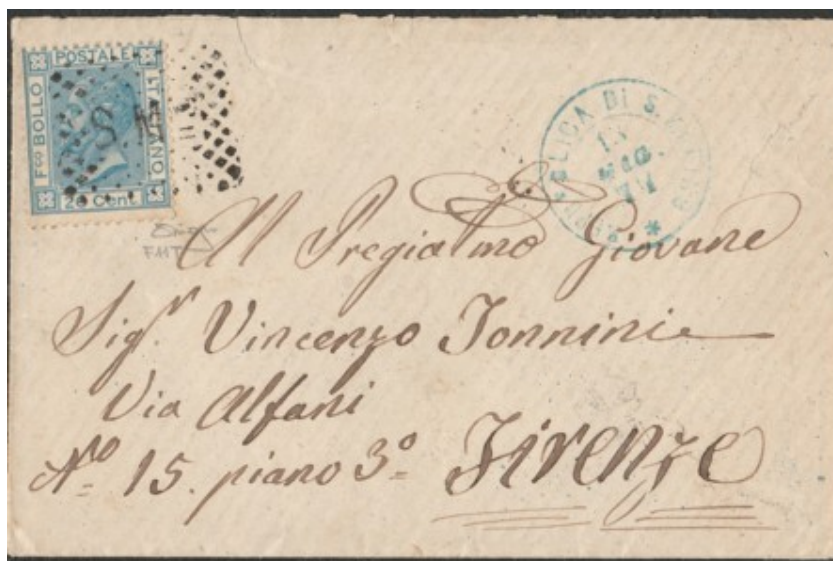 Fco BOLLO
POSTALE
ITALIANO
20 Cent
S M
REPUBBLICA DI S. MARINO
MAG
71
Al Pregiatmo Giovane
Sigr Vincenzo Tonnini
Via Alfani
No 15. piano 3o Firenze